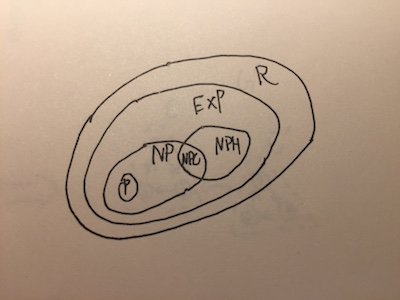 R
EXP
NP
NPC
NPH
P